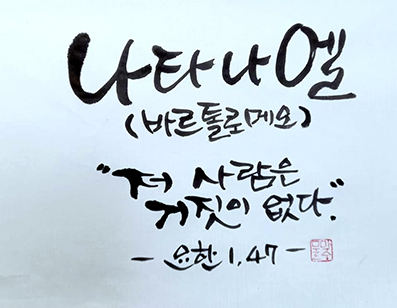 나타나엘
(바르톨로메오)
"저 사람은
거짓이 없다."
- 요한 1,47 -